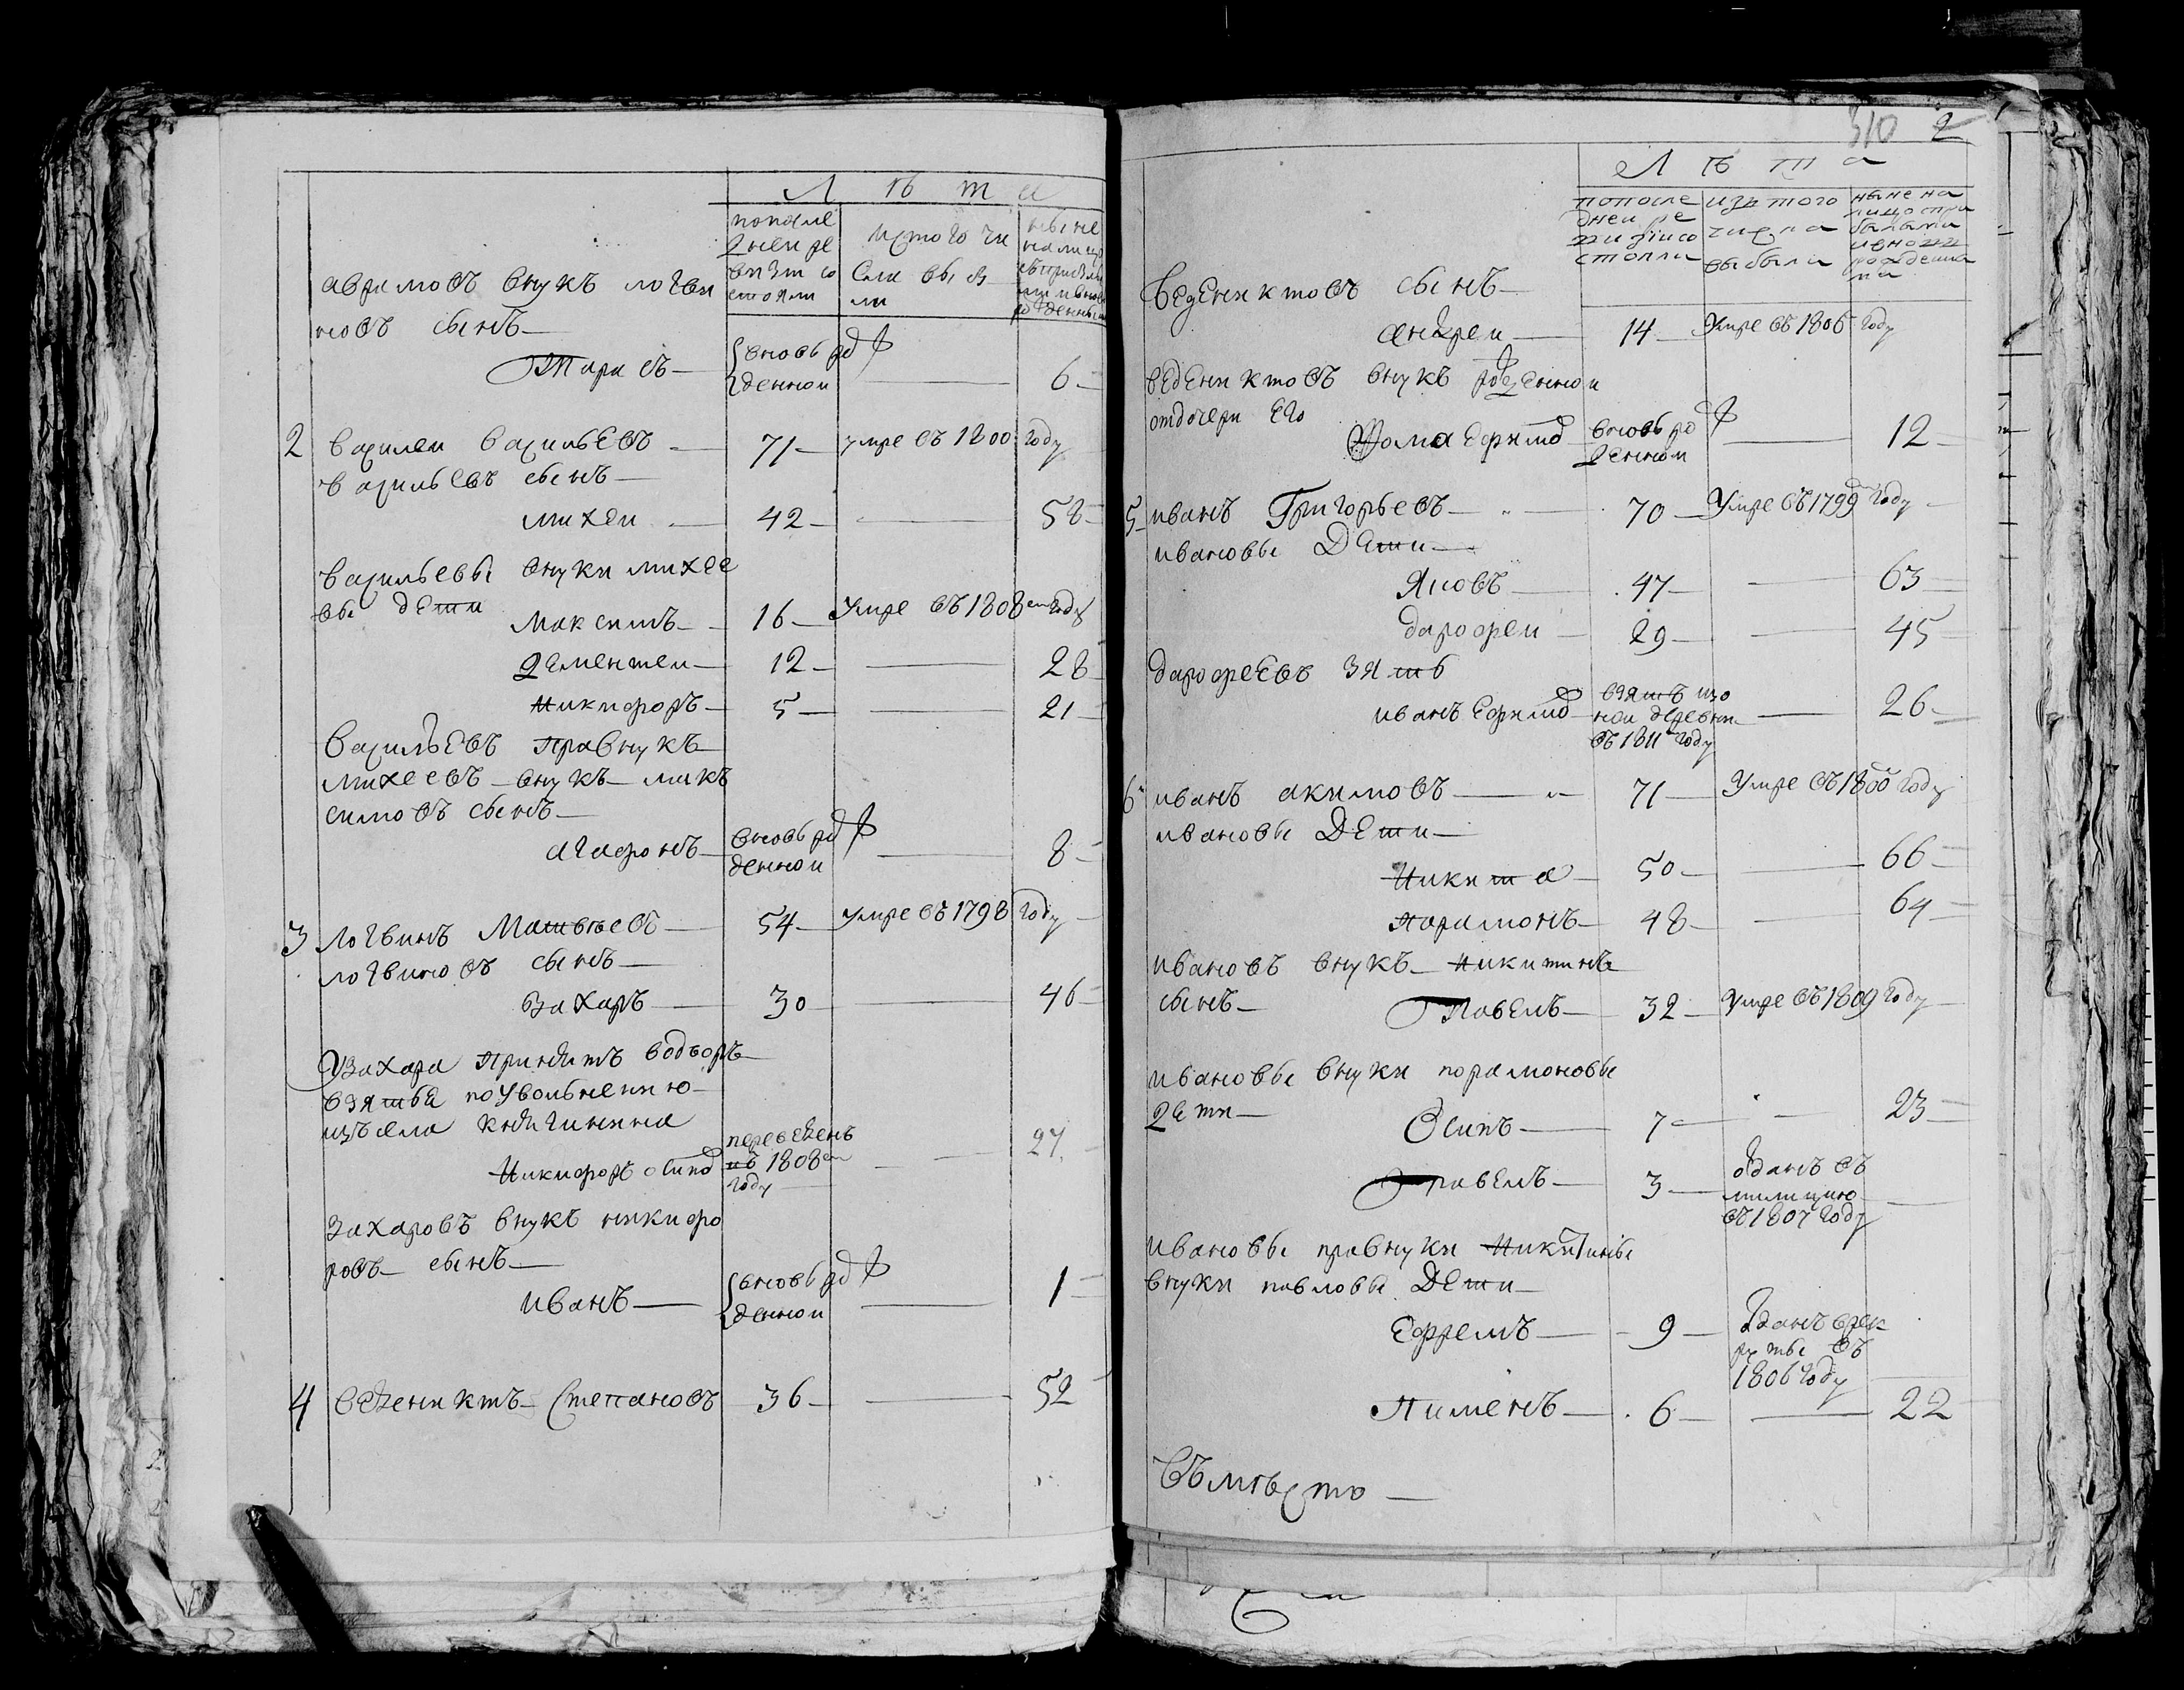 Л ѣ т а
попосле
дней ре
визіи со
стояли
ис того чи
сла выбы
ли
ныне
налицо
аврамовъ внукъ логви
новъ сынъ
Тарасъ вновь ро
жденной — 6
2 василеи васильевъ — 71 — умре въ 1800 году
васильевъ сынъ
михеи — 42 — 58
васильевы внуки михее
вы дети
Максимъ — 16 — Умре въ 1808 году
дементеи — 12 — 28
Никифоръ — 5 — 21
васильевъ правнукъ
михеевъ внукъ макъ
симовъ сынъ
агафонъ — вновь рож
денной — 8
3 логвинъ Матвѣевъ — 54 — умре въ 1798 году
логвиновъ сынъ
Захаръ — 30 — 46
Узахара принятъ водворъ
взятья поувольнению
изъ села
Никифоръ осипов переведенъ
въ 1808
году — 27
Захаровъ внукъ никифо
ровъ сынъ
иванъ — вновь рож
денной — 1
4 ведениктъ Степановъ — 36 — 52
310 2
Л ѣ т а
попосле
дней ре
визіи со
стояли
изъ того
числа
выбыли
ныне на
лицо
веденихтовъ сынъ
андреи — 14 — Умре въ 1806 году
веденихтовъ внукъ рожденнои
отдочери его
Фома Ефимов вновь рож
денной — 12
5 иванъ Григорьевъ — 70 — Умре въ 1799 году
ивановы Дети
Яковъ — 47 — 63
дарофеи — 29 — 45
дарофеевъ зять
иванъ Ефимов взятъ изо
нои деревни
въ 1811 году — 26
6 иванъ акимовъ — 71 — Умре въ 1800 году
ивановы Дети
Никита — 50 — 66
Парамонъ — 48 — 64
ивановъ внукъ Никитинъ
сынъ Павелъ — 32 — Умре въ 1809 году
ивановы внуки парамоновы
дети
Осипъ — 7 — 23
Павелъ — 3 — отданъ въ
милицию
въ 1807 году
ивановы правнуки Никитины
внуки павловы Дети
Ефремъ — 9 — отданъ врек
руты въ
1806 году
Пименъ — 6 — 22
Въместо